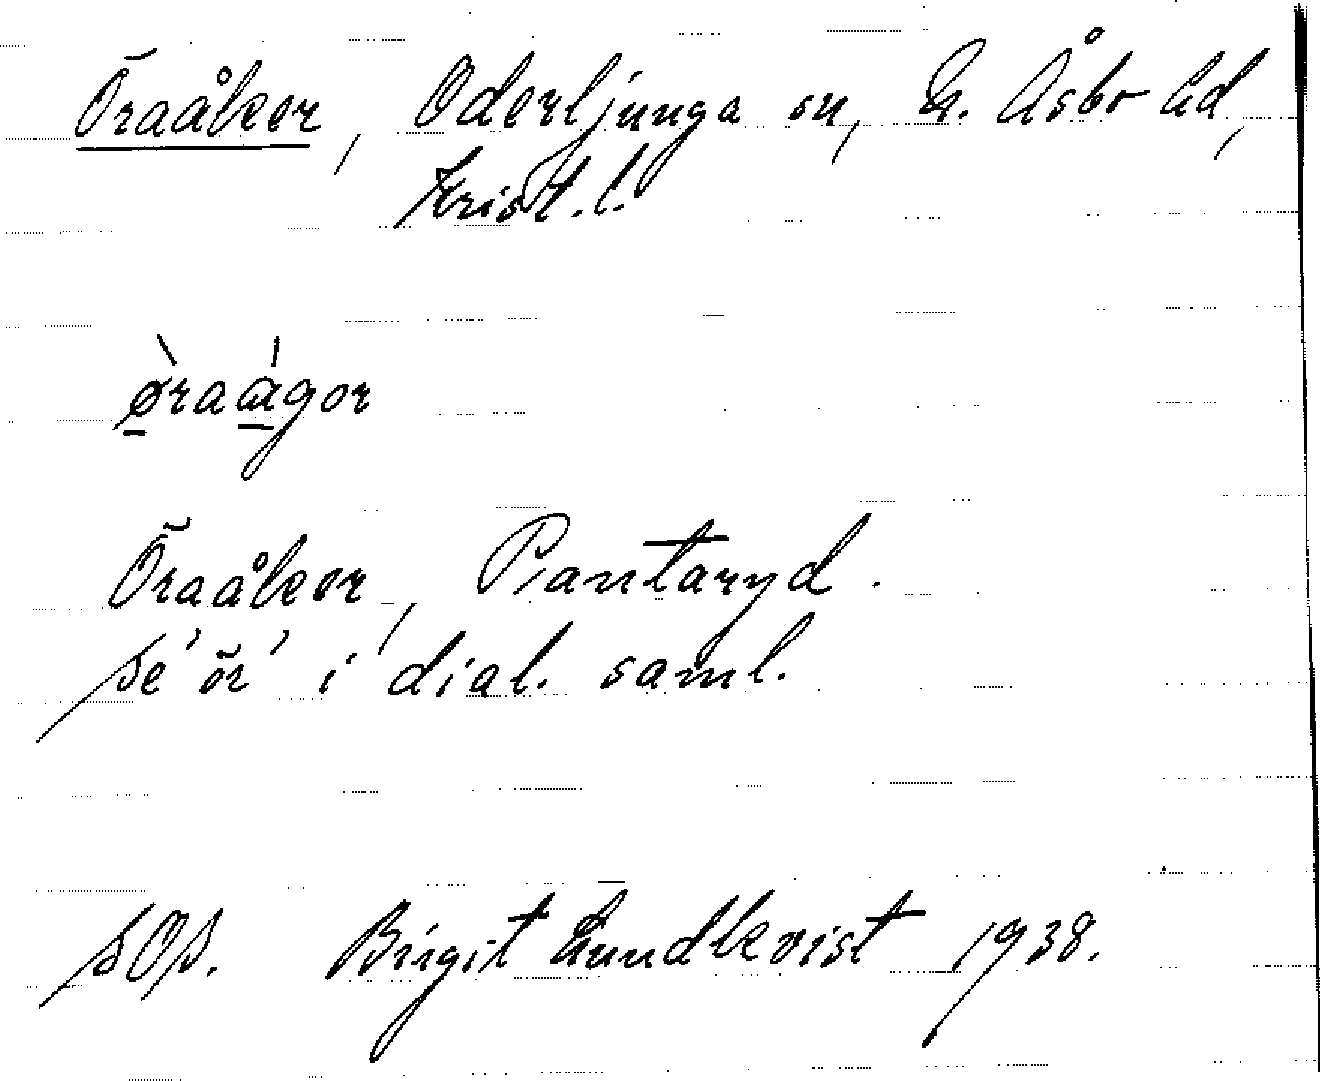 Öraåker, Oderljunga sn, N. Åsbo hd,
Krist. l.
øraågor
Öraåker, Pantaryd.
se 'ör' i dial. saml.
SOS. Birgit Lundkvist 1938.